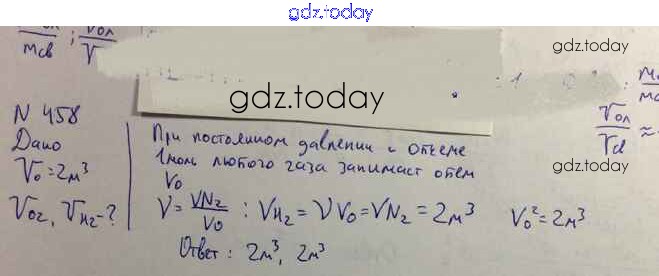 gdz.today
mсв ; Vол
gdz.today
gdz.today
N 458
Дано
V₀ = 2м³
V₀₂, V_H₂ - ?
При постоянном давлении и объеме
1 моль любого газа занимает объем
V₀
ν = VN₂/V₀ ; V_H₂ = νV₀ = VN₂ = 2м³ V₀² = 2м³
Ответ: 2м³, 2м³
Vол ≈
gdz.today